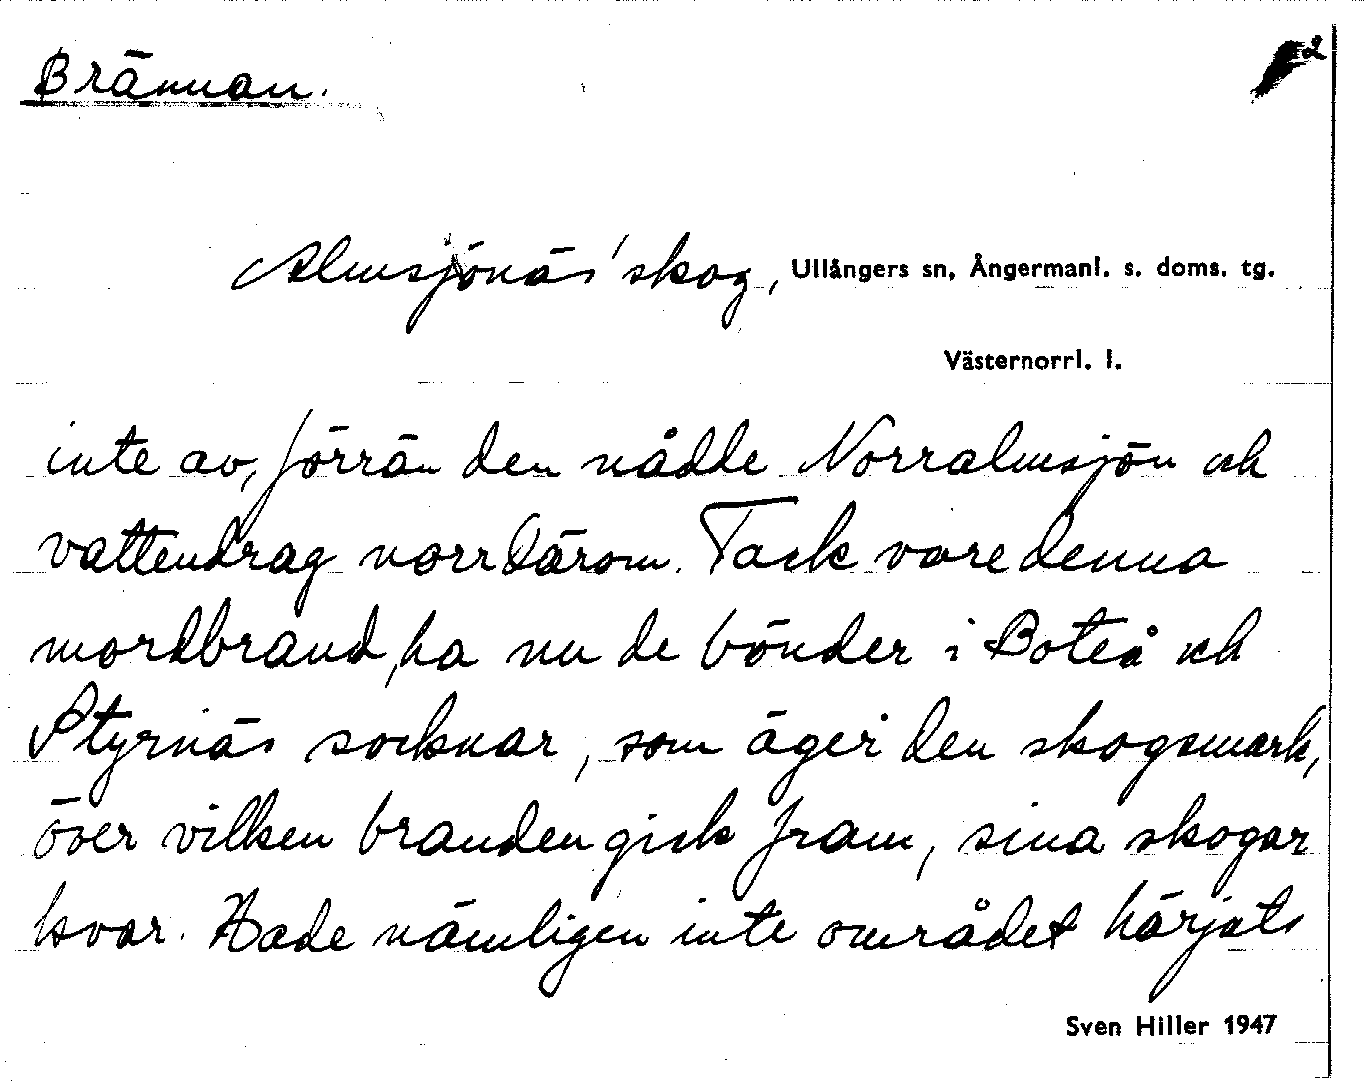 Brännan.
2
Almsjönäs' skog, Ullångers sn, Ångermanl. s. doms. tg.
Västernorrl. l.
inte av, förrän den nådde Norralmsjön och
vattendrag norr därom. Tack vare denna
mordbrand, ha nu de bönder i Boteå och
Styrnäs socknar, som äger den skogsmark,
över vilken branden gick fram, sina skogar
kvar. Hade nämligen inte området härjats
Sven Hiller 1947